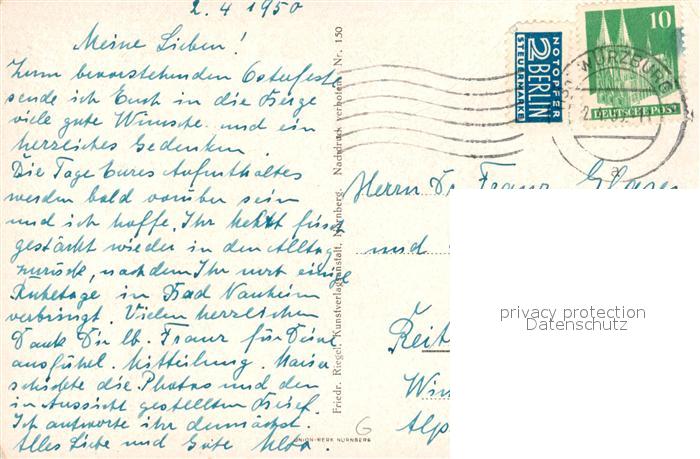 2.4 1950
Meine Lieben!
Zum bevorstehenden Osterfest
sende ich Euch in die Berge
viele gute Wünsche und ein
herzliches Gedenken.
Die Tage Eures Aufenthaltes
werden bald vorüber sein
und ich hoffe, Ihr kehrt frisch
gestärkt wieder in den Alltag
zurück, nachdem Ihr noch einige
Ruhetage in Bad Nauheim
verbringt. Vielen herzlichen
Dank Dir lb. Franz für Deine
ausführl. Mitteilung.
schickte die Photos und den
in Aussicht gestellten Brief.
Ich antworte ihr demnächst.
Alles Liebe und Gute
Friedr. Riegel, Kunstverlagsanstalt, Nürnberg. Nachdruck verboten. Nr. 150
UNION-WERK NÜRNBERG
G
NOTOPFER
2 BERLIN
STEUERMARKE
10
DEUTSCHE POST
WÜRZBURG
2
a
Herrn Dr. Franz
und
Reit
Win
Alp
privacy protection
Datenschutz